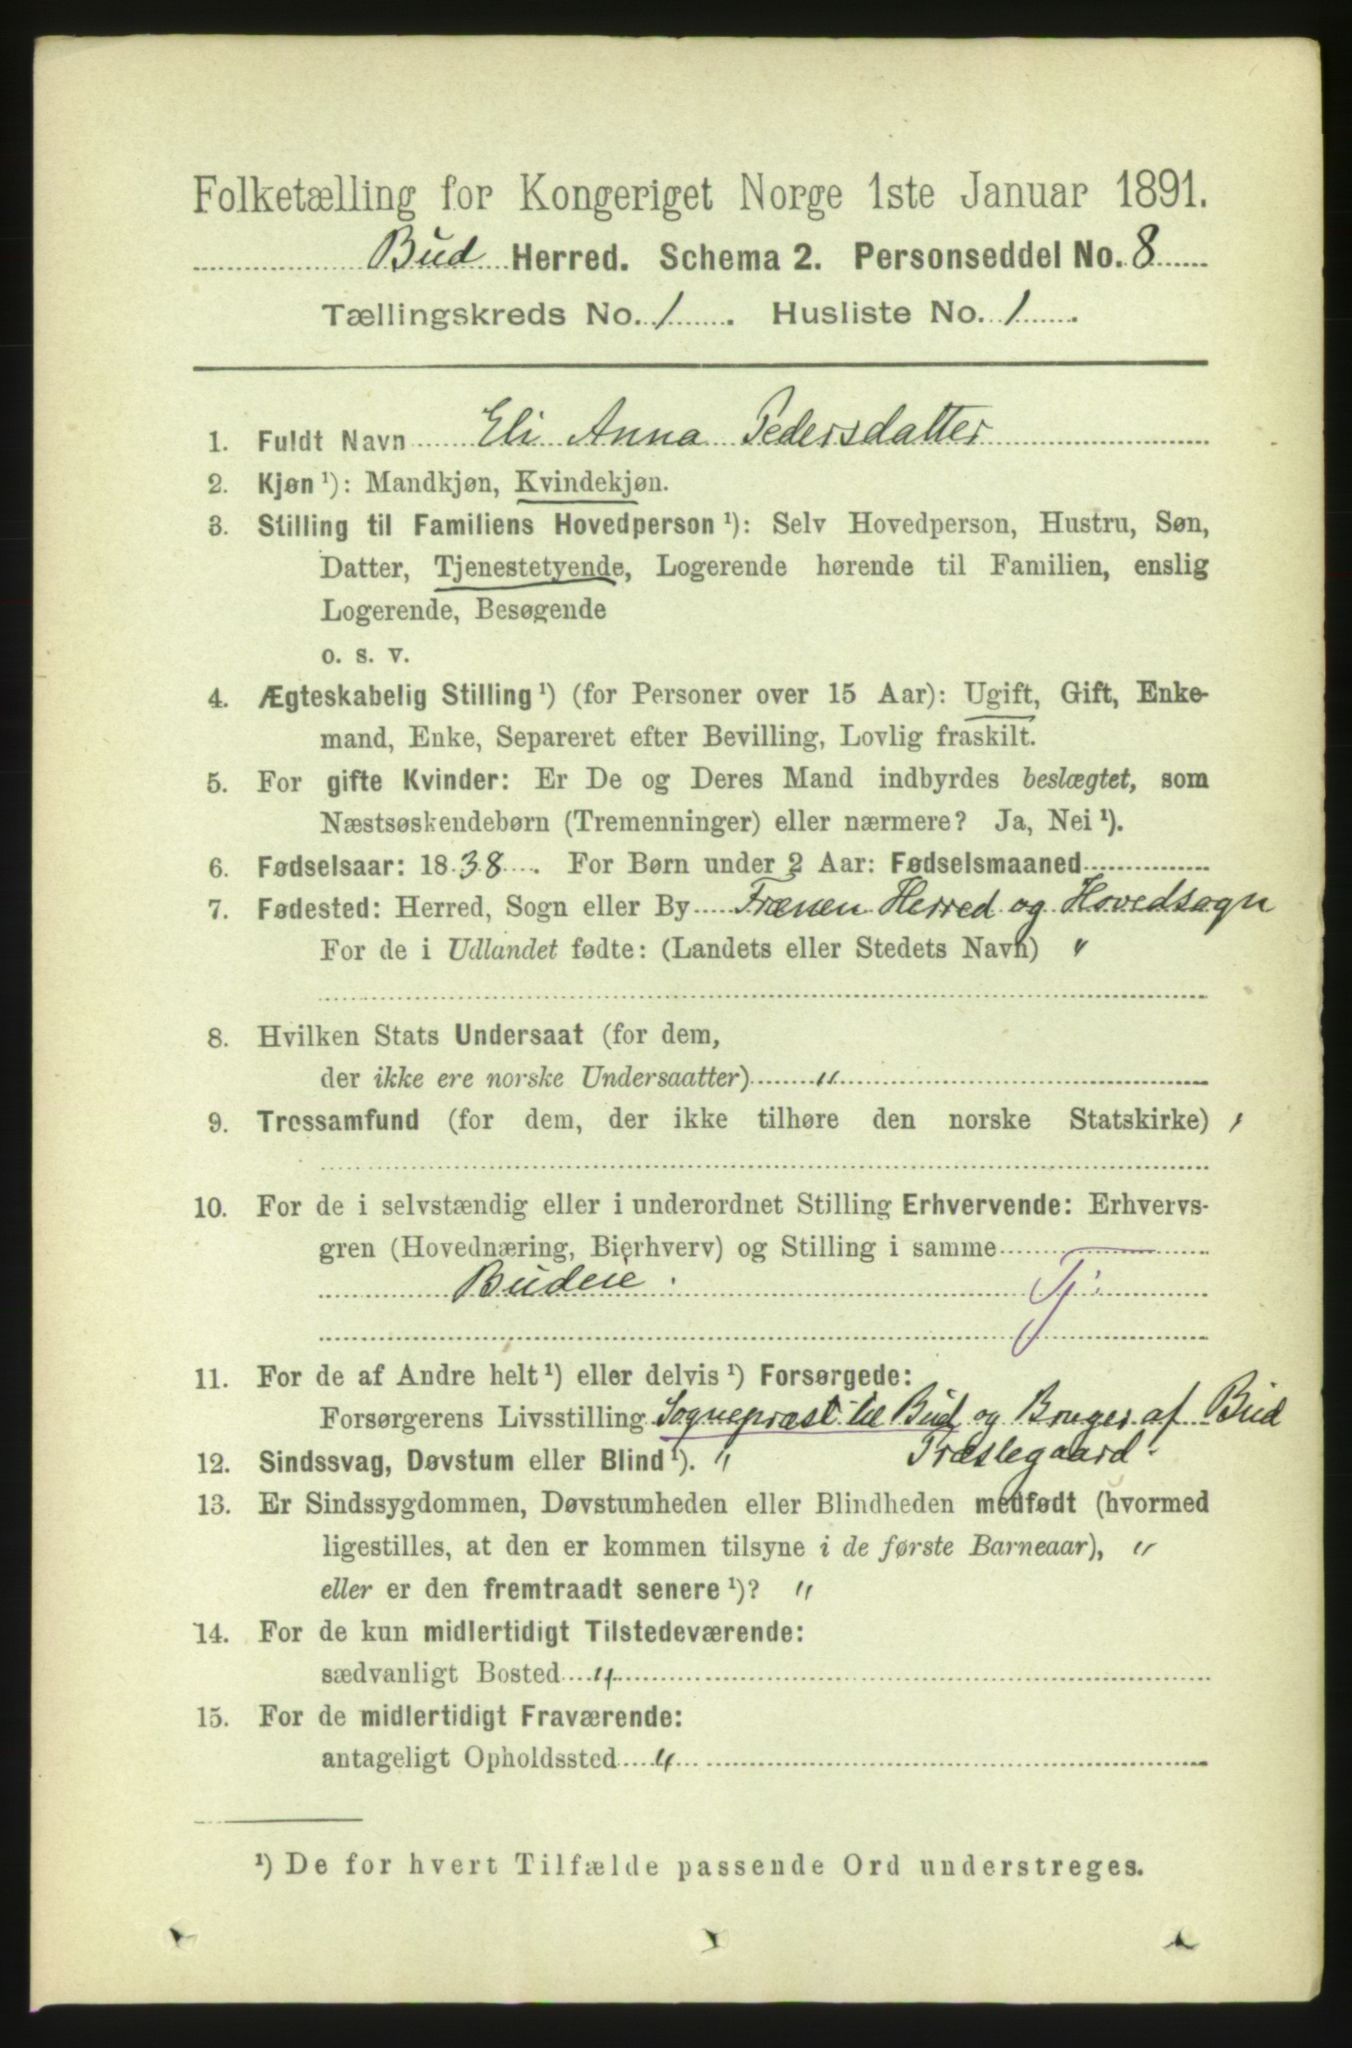 Folketælling for Kongeriget Norge 1ste Januar 1891.
Bud Herred. Schema 2. Personseddel No. 8
Tællingskreds No. 1. Husliste No. 1.
1. Fuldt Navn Eli Anna Pedersdatter
2. Kjøn ¹): Mandkjøn, Kvindekjøn.
3. Stilling til Familiens Hovedperson ¹): Selv Hovedperson, Hustru, Søn,
Datter, Tjenestetyende, Logerende hørende til Familien, enslig
Logerende, Besøgende
o. s. v.
4. Ægteskabelig Stilling ¹) (for Personer over 15 Aar): Ugift, Gift, Enke-
mand, Enke, Separeret efter Bevilling, Lovlig fraskilt.
5. For gifte Kvinder: Er De og Deres Mand indbyrdes beslægtet, som
Næstsøskendebørn (Tremenninger) eller nærmere? Ja, Nei ¹).
6. Fødselsaar: 1838. For Børn under 2 Aar: Fødselsmaaned
7. Fødested: Herred, Sogn eller By Frænen Herred og Hovedsogn
For de i Udlandet fødte: (Landets eller Stedets Navn) "
8. Hvilken Stats Undersaat (for dem,
der ikke ere norske Undersaatter) "
9. Trossamfund (for dem, der ikke tilhøre den norske Statskirke) "
10. For de i selvstændig eller i underordnet Stilling Erhvervende: Erhvervs-
gren (Hovednæring, Bierhverv) og Stilling i samme
Budeie. Tj:
11. For de af Andre helt ¹) eller delvis ¹) Forsørgede:
Forsørgerens Livsstilling Sognepræst til Bud og Bruger af Bud
Præstegaard.
12. Sindssvag, Døvstum eller Blind ¹). "
13. Er Sindssygdommen, Døvstumheden eller Blindheden medfødt (hvormed
ligestilles, at den er kommen tilsyne i de første Barneaar), "
eller er den fremtraadt senere ¹)? "
14. For de kun midlertidigt Tilstedeværende:
sædvanligt Bosted "
15. For de midlertidigt Fraværende:
antageligt Opholdssted "
¹) De for hvert Tilfælde passende Ord understreges.